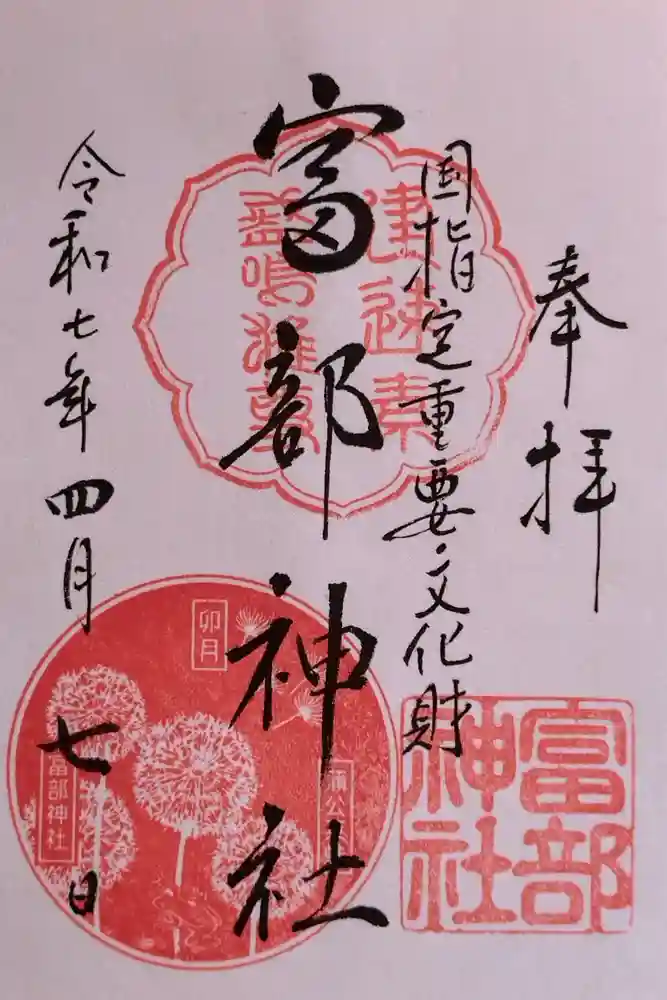 奉拝
国指定重要文化財
富部神社
令和七年四月七日
建速素
盞鳴雄尊
卯月
蒲公
富部神社
富部
神社